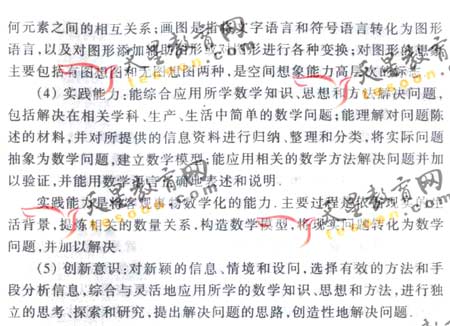 何元素之间的相互关系;画图是指 文字语言和符号语言转化为图形
语言,以及对图形添加辅助图形或对图形进行各种变换;对图形的想
主要包括有图想图和无图想图两种,是空间想象能力高层次的标
(4) 实践能力:能综合应用所学数学知识、思想和方法解决问题,
包括解决在相关学科、生产、生活中简单的数学问题;能理解对问题陈
述的材料,并对所提供的信息资料进行归纳、整理和分类,将实际问题
抽象为数学问题,建立数学模型;能应用相关的数学方法解决问题并加
以验证,并能用数学语言正确地表述和说明.
实践能力是将客观事物数学化的能力.主要过程是依据现实的生
活背景,提炼相关的数量关系,构造数学模型,将现实问题转化为数学
问题,并加以解决.
(5) 创新意识:对新颖的信息、情境和设问,选择有效的方法和手
段分析信息,综合与灵活地应用所学的数学知识、思想和方法,进行独
立的思考、探索和研究,提出解决问题的思路,创造性地解决问题.
天星教育网
天星教育网
天星教育网
天星教育网